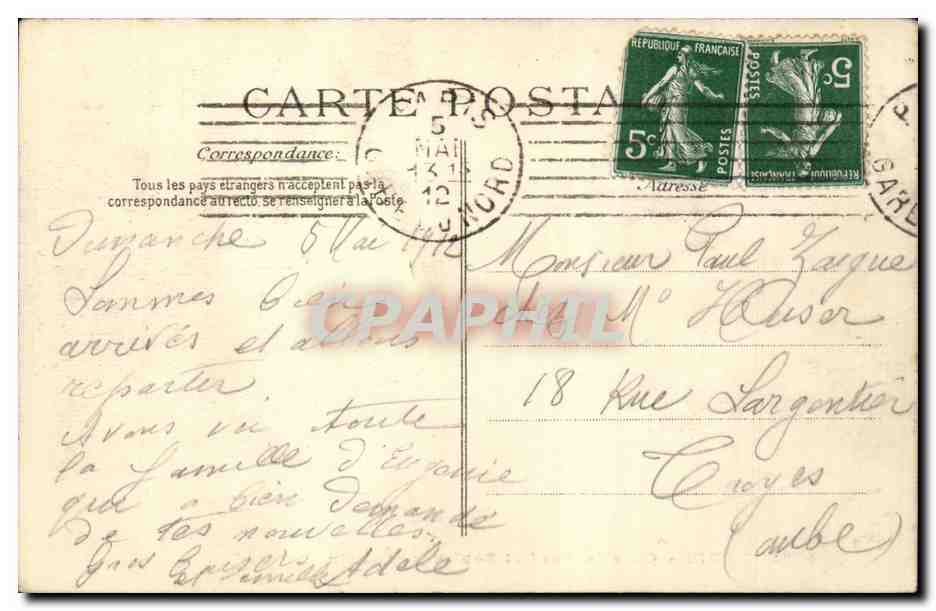 CARTE POSTA
Correspondance
Tous les pays étrangers n'acceptent pas la
correspondance au recto, se renseigner à la Poste
Adresse
PARIS
5
MAI
12
GARE DU NORD
GARE
RÉPUBLIQUE FRANÇAISE
5c
POSTES
RÉPUBLIQUE FRANÇAISE
5c
POSTES
Dimanche 5 Mai 1912
Sommes bien
arrivés et allons
repartir
Avons vu toute
la famille d'Eugénie
qui a bien demandé
de tes nouvelles
Gros Baisers
et famille Adele
Monsieur Paul Zaigue
chez Mr Houser
18 Rue Largentier
Troyes
(aube)
CPAPHIL